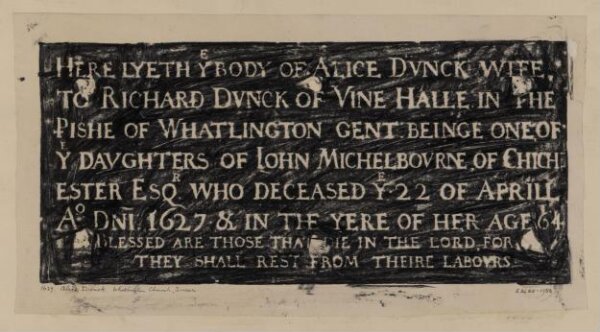 HERE LYETH Yᴱ BODY OF ALICE DVNCK WIFE
TO RICHARD DVNCK OF VINE HALLE IN THE
PISHE OF WHATLINGTON GENT BEINGE ONE OF
Yᴱ DAVGHTERS OF IOHN MICHELBOVRNE OF CHICH
ESTER ESQᴿ WHO DECEASED Yᴱ 22 OF APRILL
Aº DNI 1627 & IN THE YERE OF HER AGE 64
BLESSED ARE THOSE THAT DIE IN THE LORD, FOR
THEY SHALL REST FROM THEIRE LABOVRS
1627 Alice Dunck Whatlington Church, Sussex